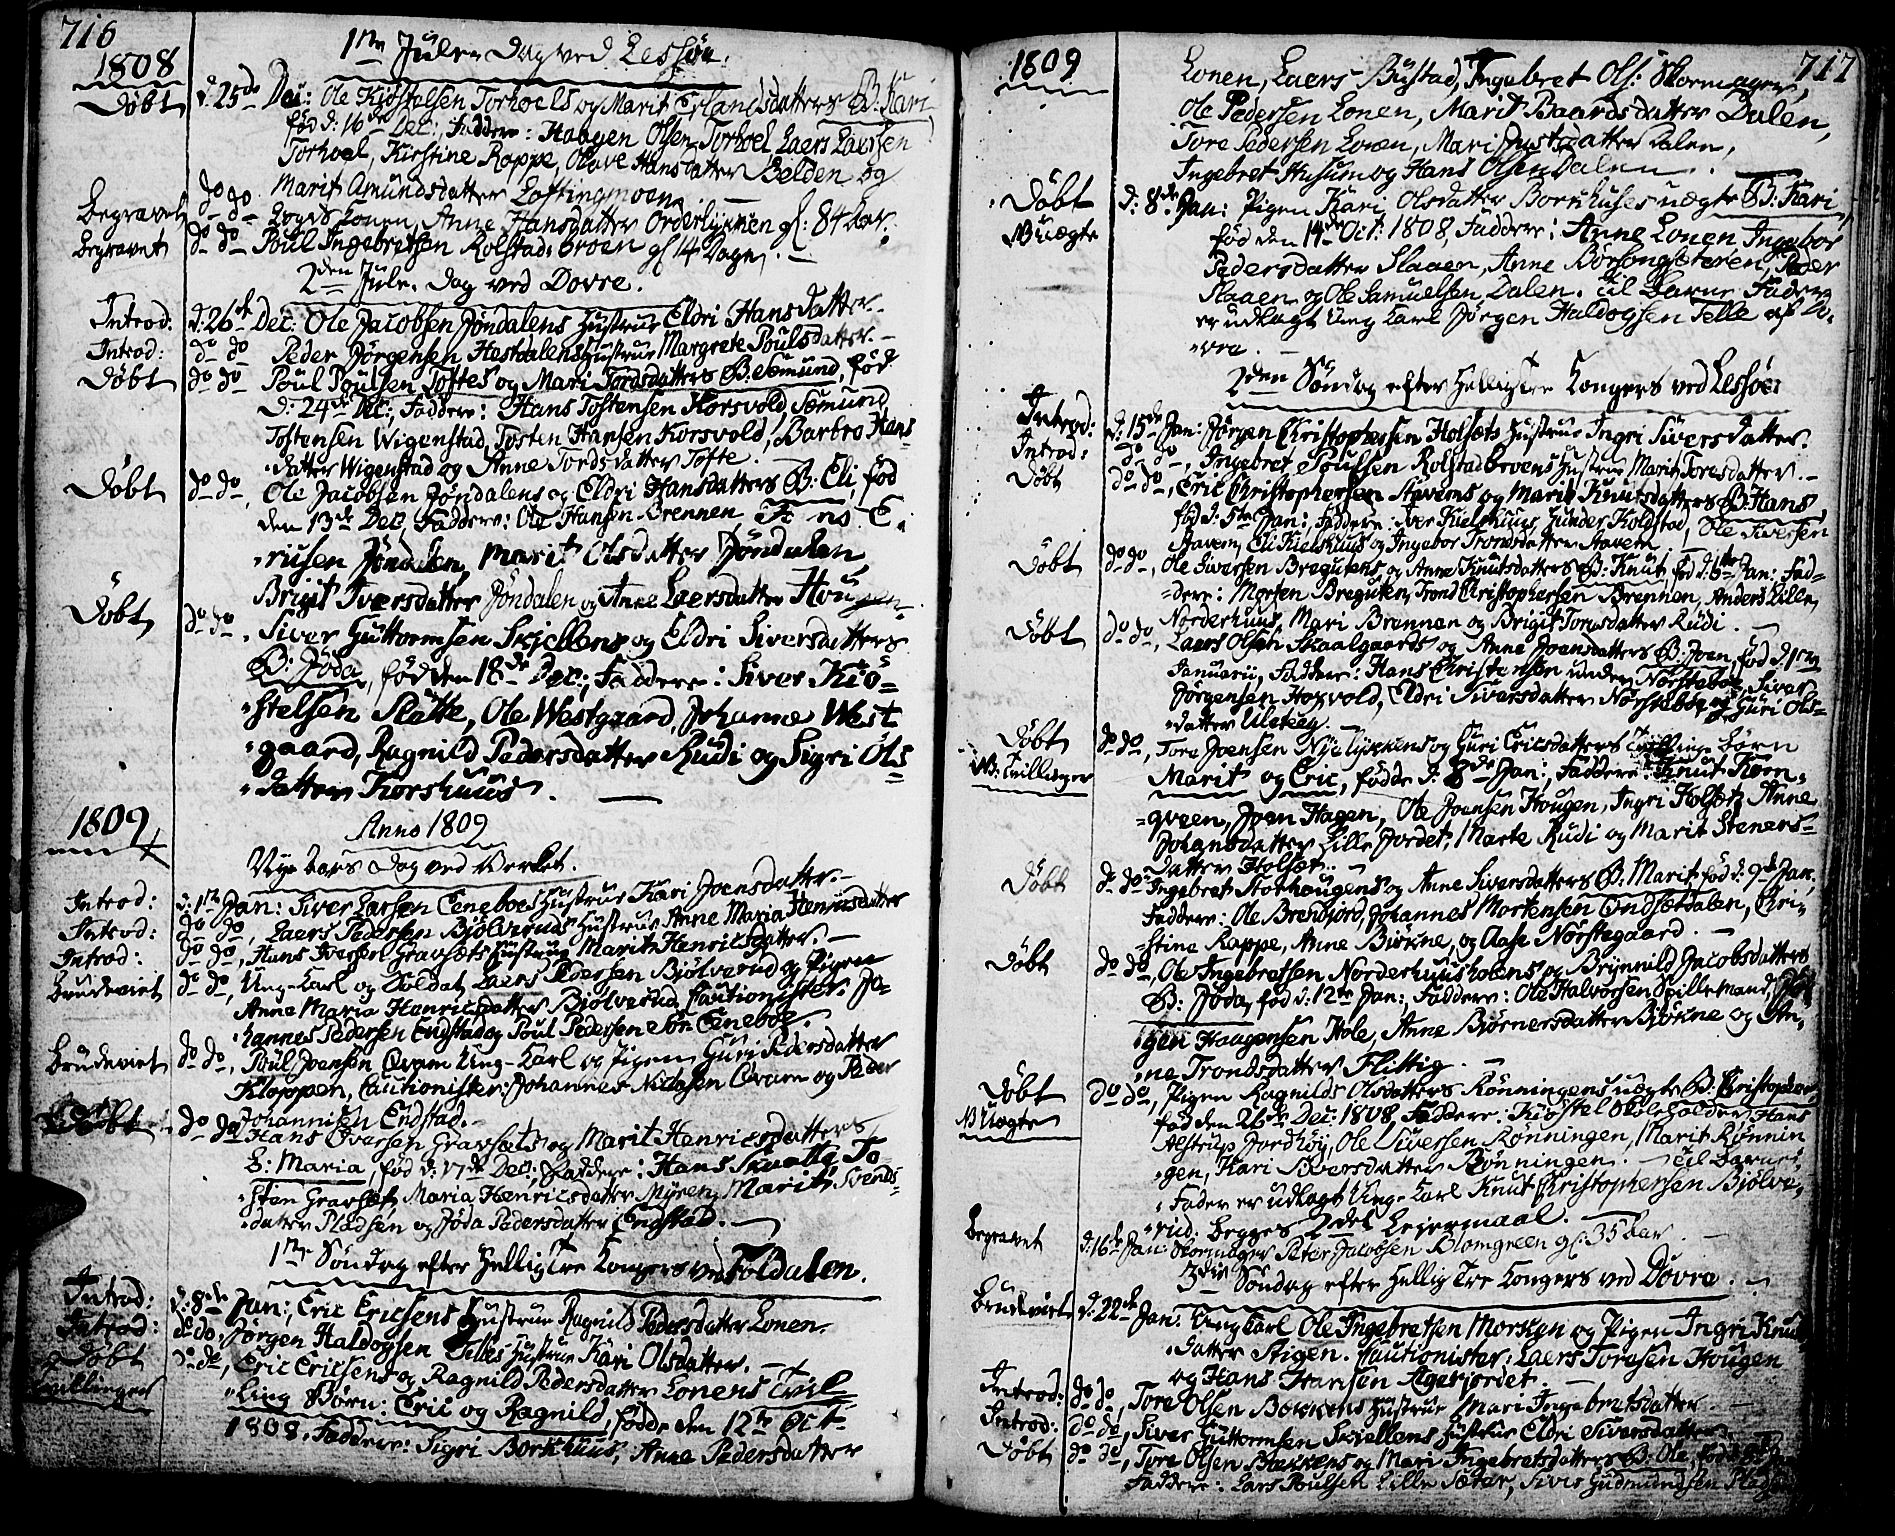 716
1808
1ste Jule Dag ved Lessøe.
Døbt d: 25de Dec: Ole Kiøstelsen Torhoels og Marit Erlandsdatters B: Kari
fød d: 16de Dec:, Faddere: Haagen Olsen Torhoel Laers Laersen
Torhoel, Kirstine Rappe, Olave Hansdatter Belden og
Marit Amundsdatter Loftingmoen.
Begravet do do Logds Lonen, Anne Hansdatter Orderlykken gl: 84 Aar.
Begravet do do Poul Ingebretsen Rolstadbroen gl 14 Dage.
2den Jule Dag ved Dovre.
Introd: d: 26de Dec: Ole Jacobsen Jøndalens Hustrue Eldri Hansdatter.
Introd: do do Peder Jørgensen Hestdalens Hustrue Margrete Poulsdatter.
Døbt do do Poul Poulsen Toftes og Mari Tordsdatters B: Semund, fød
d: 24de Dec:, Faddere: Hans Tostensen Korsvold, Semund
Tostensen Wigenstad, Tosten Hansen Korsvold, Barbro Hans-
datter Wigenstad og Anne Tordsdatter Tofte.
Døbt do do, Ole Jacobsen Jøndalens og Eldri Hansdatters B: Eli, fød
den 13de Dec, Faddere: Ole Hansen Brennen E-
rissen Jøndalen, Marit Olsdatter Jøndalen,
Brigit Iversdatter Jøndalen og Anne Laersdatter Hougen.
Døbt do do, Siver Guttormsen Skjellens og Eldri Siversdatters
B: Jøda, fød den 18de Dec:, Faddere: Siver Kiø-
stelsen Slatte, Ole Westgaard, Johanne West-
gaard, Ragnild Pedersdatter Rudi og Sigri Ols-
datter Korshuus.
1809
Anno 1809
Nye Aars Dag ved Verket.
Introd: d: 1ste Jan: Siver Larsen Eneboes Hustrue Kari Joensdatter.
Introd: do do, Laers Pedersen Bjølveruds Hustrue Anne Maria Henricsdatter
Introd: do do, Hans Iversen Gravsets Hustrue Marit Henricsdatter.
Brudeviet do do, Ung-Karl og Soldat Laers Pedersen Bjølverud og Pigen
Anne Maria Henricsdatter Bjølverud, Cautionister: Jo-
hannes Pedersen Endstad og Poul Pedersen Eneboe.
Brudeviet do do, Poul Joensen Qvam Ung-Karl og Pigen Guri Pedersdatter
Kloppen, Cautionister: Johannes Nielsen Qvam og Peder
Johannisen Endstad.
Døbt do do Hans Iversen Gravsets og Marit Henricsdatters
B: Maria, fød d: 17de Dec:, Faddere: Hans Skotte, To-
sten Gravset, Maria Henricsdatter Myren, Marit Svends-
datter Pladsen og Jøda Pedersdatter Endstad.
1ste Søndag efter Hellig Tre Kongers ved Foldalen.
Introd: d: 8de Jan:, Eric Ericsens Hustrue Ragnild Pedersdatter Lonen.
Introd: do do, Jørgen Haldogsen Telles Hustrue Kari Olsdatter.
Døbt do do, Eric Ericsens og Ragnild Pedersdatter Lonens Tvil-
Tvillinger ling Børn: Eric og Ragnild, fødde den 12te Oct
1808, Faddere: Sigri Borkhuus, Anne Pedersdatter
717
1809
Lonen, Laers Bustad, Ingebret Ols: Skomager,
Ole Pedersen Lonen, Marit Baardsdatter Dalen,
Tore Pedersen Lonen, Mari Justsdatter Dalen,
Ingebret Husum og Hans Olsen Dalen.
Døbt d: 8de Jan: Pigen Kari Olsdatter Borkhuses uægte B: Kari,
B: uægte fød den 14de Oct: 1808, Faddere: Anne Lonen, Ingebor
Pedersdatter Slaaen, Anne Børsongseteren, Peder
Slaaen og Ole Samuelsen Dalen. Til Barne Fader
er udlagt Ung Karl Jørgen Haldogsen Telle af Do-
vre.
2den Søndag efter Hellig Tre Kongers ved Lessøe.
Introd: d: 15de Jan: Jørgen Christophersen Holsets Hustrue Ingri Siversdatter.
Introd: do do, Ingebret Poulsen Rolstadbroens Hustrue Marit Toresdatter.
Døbt do do, Eric Christophersen Stavems og Marit Knutsdatters B: Hans,
fød d: 5te Jan:, Faddere: Iver Kielshuus, Gunder Kolstad, Ole Siversen
Stavem, Eli Kielshuus og Ingebor Tronsdatter Stavem.
Døbt do do, Ole Siversen Bregutens og Anne Knutsdatters B: Knut, fød d: 6te Jan: Fad-
dere: Morten Breguten, Trond Christophersen Brennen, Anders Lille
Norderhuus, Mari Brennen og Brigit Toresdatter Rudi.
Døbt do do, Laers Olsen Skaalgaards og Anne Joensdatters B: Joen, fød d: 1ste
Januarii, Faddere: Hans Christensen under Norsteboe, Siver
Jørgensen Hoxvold, Eldri Siversdatter Norsteboe og Guri Ols-
datter Ulekag.
Døbt do do, Tore Joensen Nyelykkens og Guri Ericsdatters Tvilling Børn
B: Tvillinger Marit og Eric, fødde d: 8de Jan:, Faddere: Knut Korn-
qveen, Joen Hagen, Ole Joensen Hougen, Ingri Holset, Anne
Johansdatter Lille Jordet, Marte Rudi og Marit Steners-
datter Holset.
Døbt do do Ingebret Storhougens og Anne Siversdatters B: Marit, fød d: 9de Jan,
Faddere: Ole Brendjord, Johannes Mortensen Endsetdalen, Chri-
stine Rappe, Anne Biøkne, og Aase Norstegaard.
Døbt do do, Ole Ingebretsen Norderhuusholens og Brynnild Jacobsdatters
B: Jøda, fød d: 12te Jan:, Faddere: Ole Halvorsen Spillemand, Jør-
gen Haagensen Hole, Anne Bjørnersdatter Biøkne og An-
ne Trondsdatter Flittig.
Døbt do do, Pigen Ragnilds Olsdatters Rønningens uægte B: Christopher,
B: Uægte fød den 26de Dec: 1808, Faddere: Kiøstel Skoleholder, Hans
Alstrup Jordhøy, Ole Siversen Rønningen, Marit Rønnin
gen, Kari Siversdatter Rønningen. Til Barnets
Fader er udlagt Ung-Karl Knut Christophersen Bjølve-
rud. begges 2det Leiermaal.
Begravet d: 16de Jan: Skomager Peter Jacobsen Blomgreen gl: 35 Aar.
3die Søndag efter Hellig Tre Kongers ved Dovre.
Brudeviet d: 22de Jan: Ung Karl Ole Ingebretsen Morken og Pigen Ingri Knuds
datter Stigen. Cautionister: Laers Toresen Hougen
og Hans Hansen Agerjordet.
Introd: do do, Tore Olsen Bakkens Hustrue Mari Ingebretsdatter.
Introd: do do, Siver Guttormsen Skiellens Hustrue Eldri Siversdatter.
Døbt do do, Tore Olsen Bakkens og Mari Ingebretsdatters B: Ole, fød
Faddere: Lars Poulsen Lille Sæter, Siver Gudmundsen